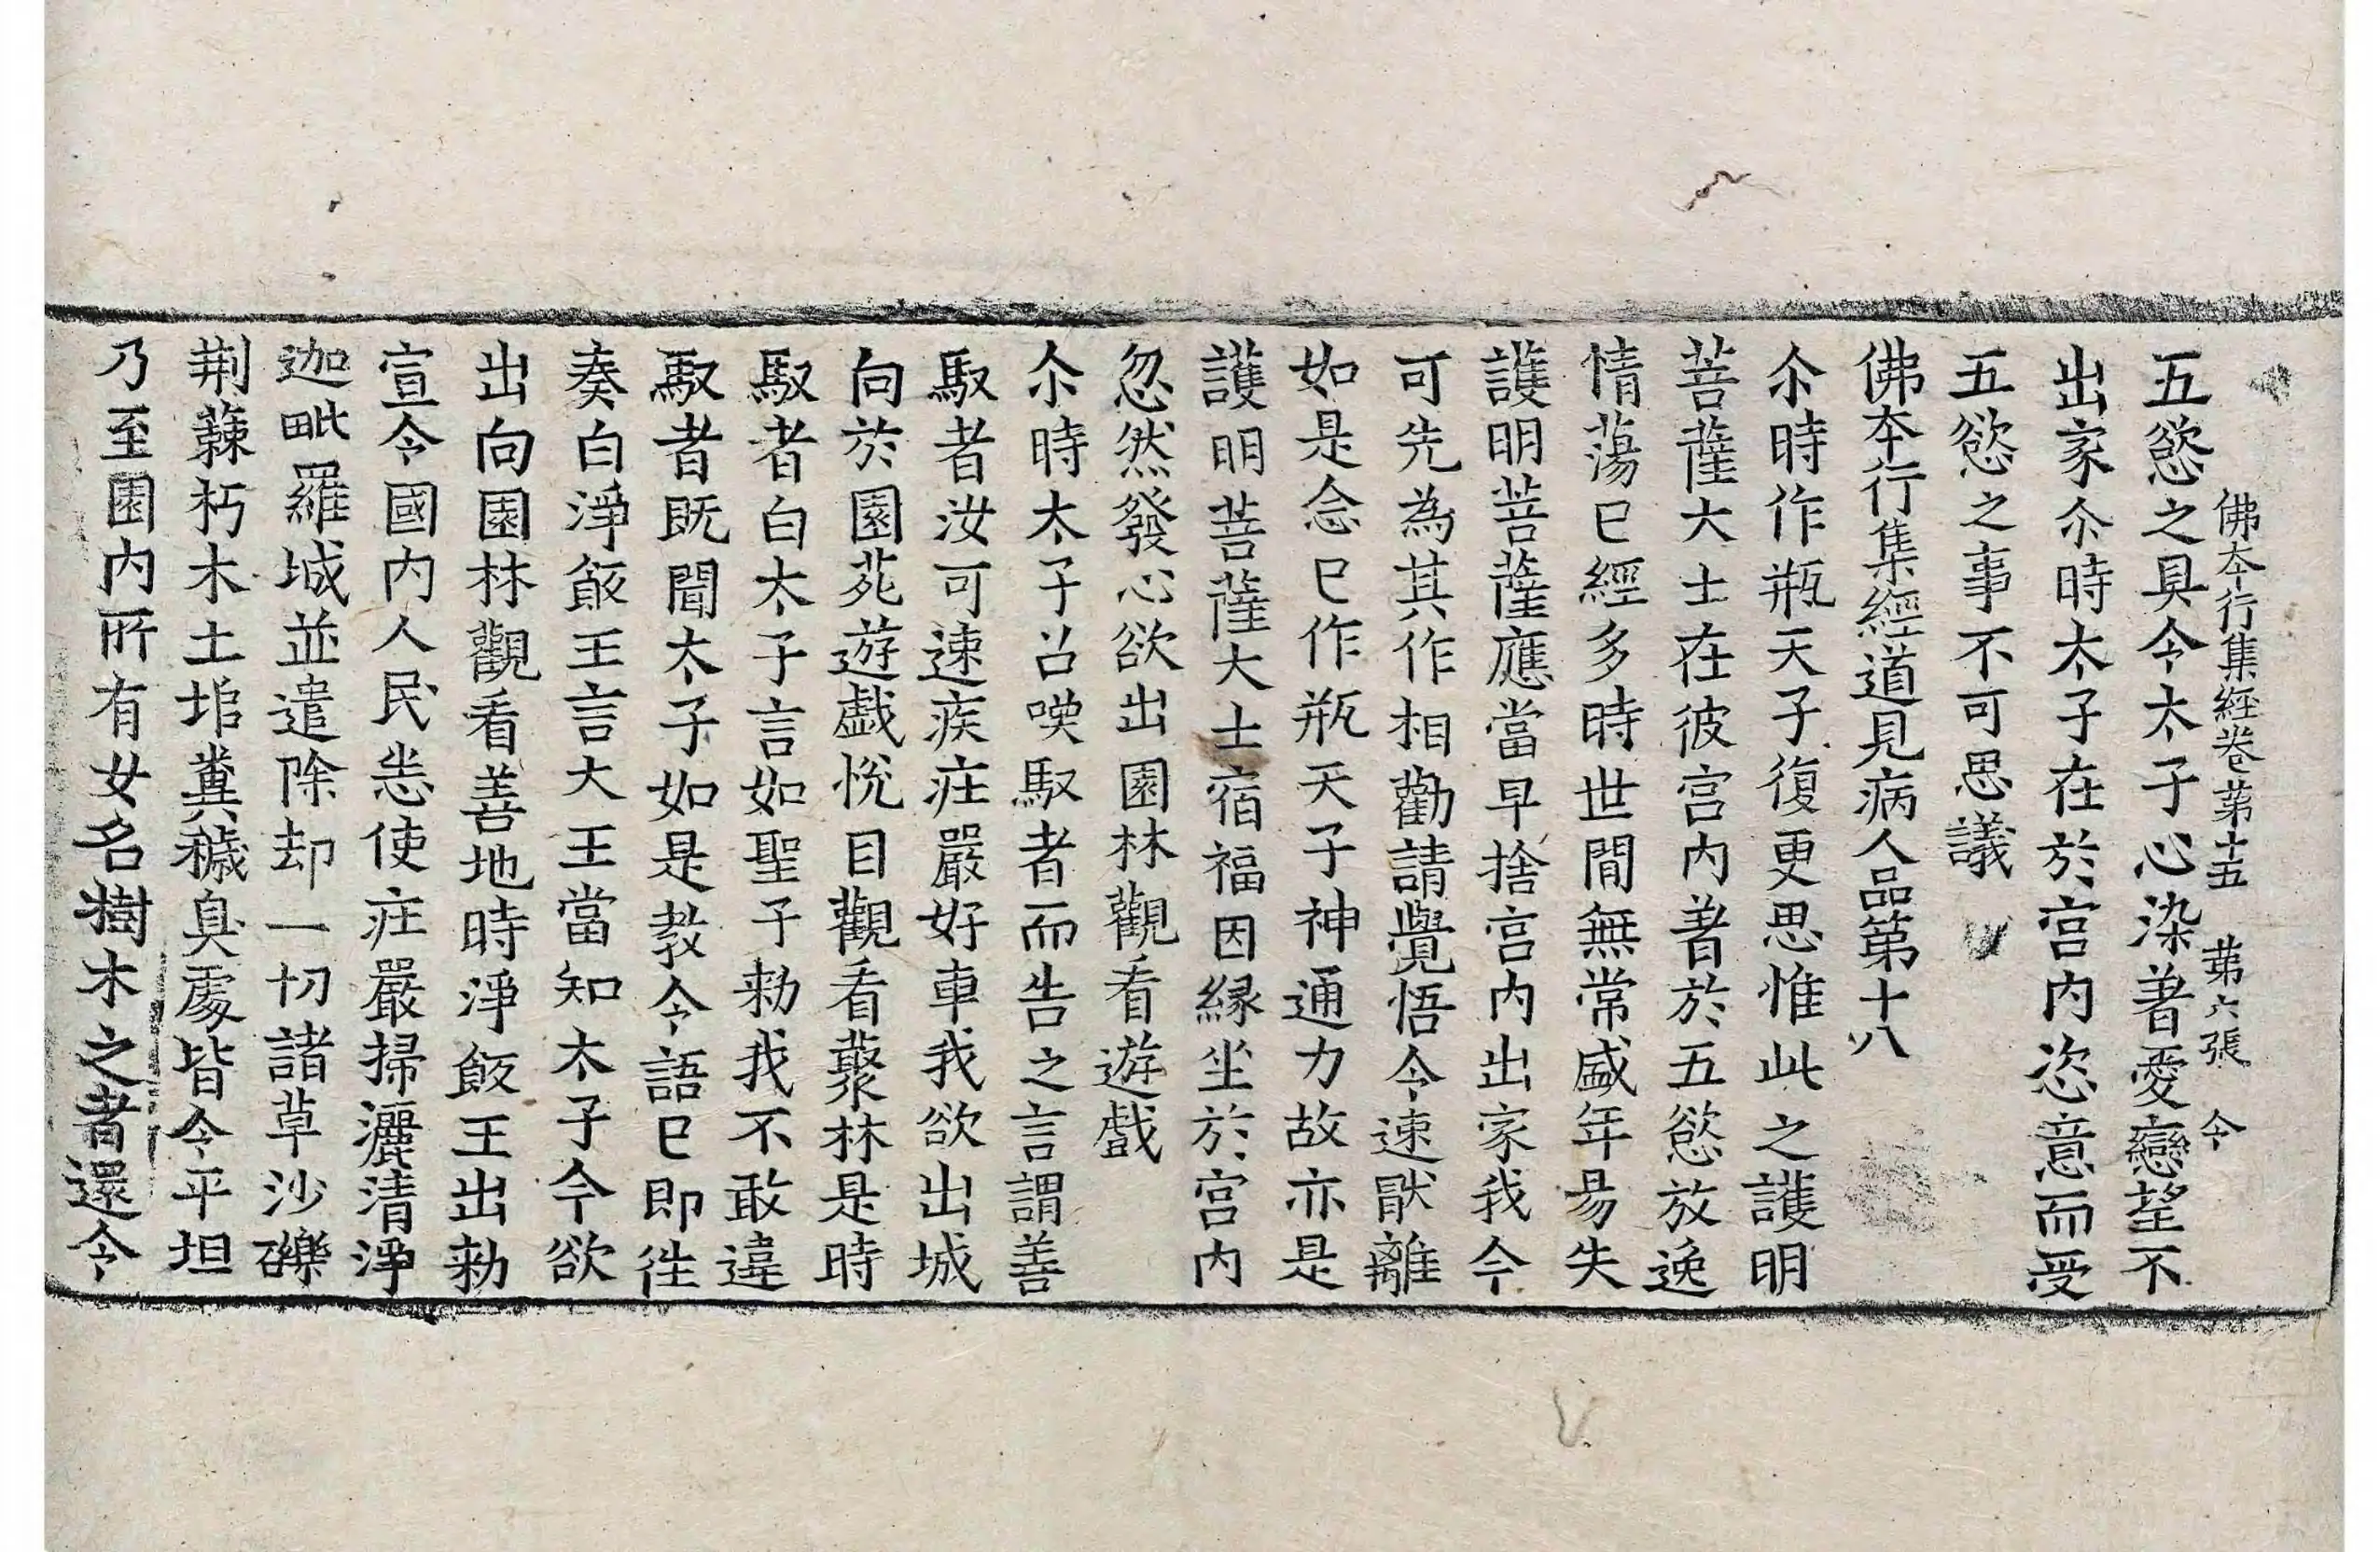 佛夲行集経卷苐十五　苐六張　令
五慾之具令太子心染著愛戀望不
出家尒時太子在於宫内恣意而受
五慾之事不可思議
佛夲行集經道見病人品第十八
尒時作瓶天子復更思惟此之護明
菩薩大士在彼宫内著於五慾放逸
情蕩已經多時世間無常盛年易失
護明菩薩應當早捨宫内出家我今
可先為其作相勸請覺悟令速猒離
如是念已作瓶天子神通力故亦是
護明菩薩大士宿福因緣坐於宫内
忽然發心欲出園林觀看遊戲
尒時太子召唤馭者而告之言謂善
馭者汝可速疾庄嚴好車我欲出城
向於園苑遊戲悅目觀看藂林是時
馭者白太子言如聖子勑我不敢違
馭者既聞太子如是教令語已即往
奏白淨飯王言大王當知太子今欲
出向園林觀看善地時淨飯王出勑
宣令國内人民悉使庄嚴掃灑清淨
迦毗羅城並遣除却一切諸草沙礫
荆蕀朽木土堆糞穢臭處皆令平坦
乃至園内所有女名樹木之者還令